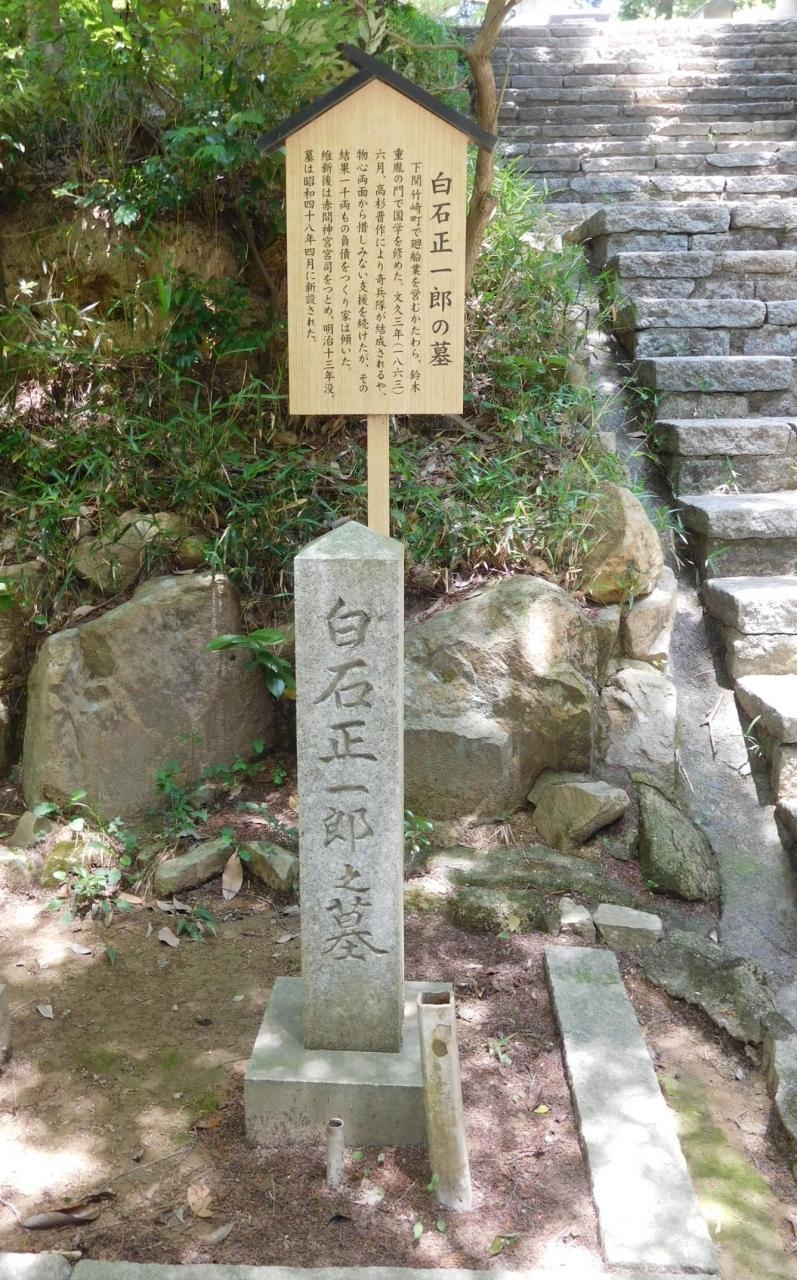 白石正一郎の墓
下関竹崎町で廻船業を営むかたわら、鈴木
重胤の門で国学を修めた。文久三年(一八六三)
六月、高杉晋作により奇兵隊が結成されるや、
物心両面から惜しみない支援を続けたが、その
結果一千両もの負債をつくり家は傾いた。
維新後は赤間神宮宮司をつとめ、明治十三年没。
墓は昭和四十八年四月に新設された。
白石正一郎之墓